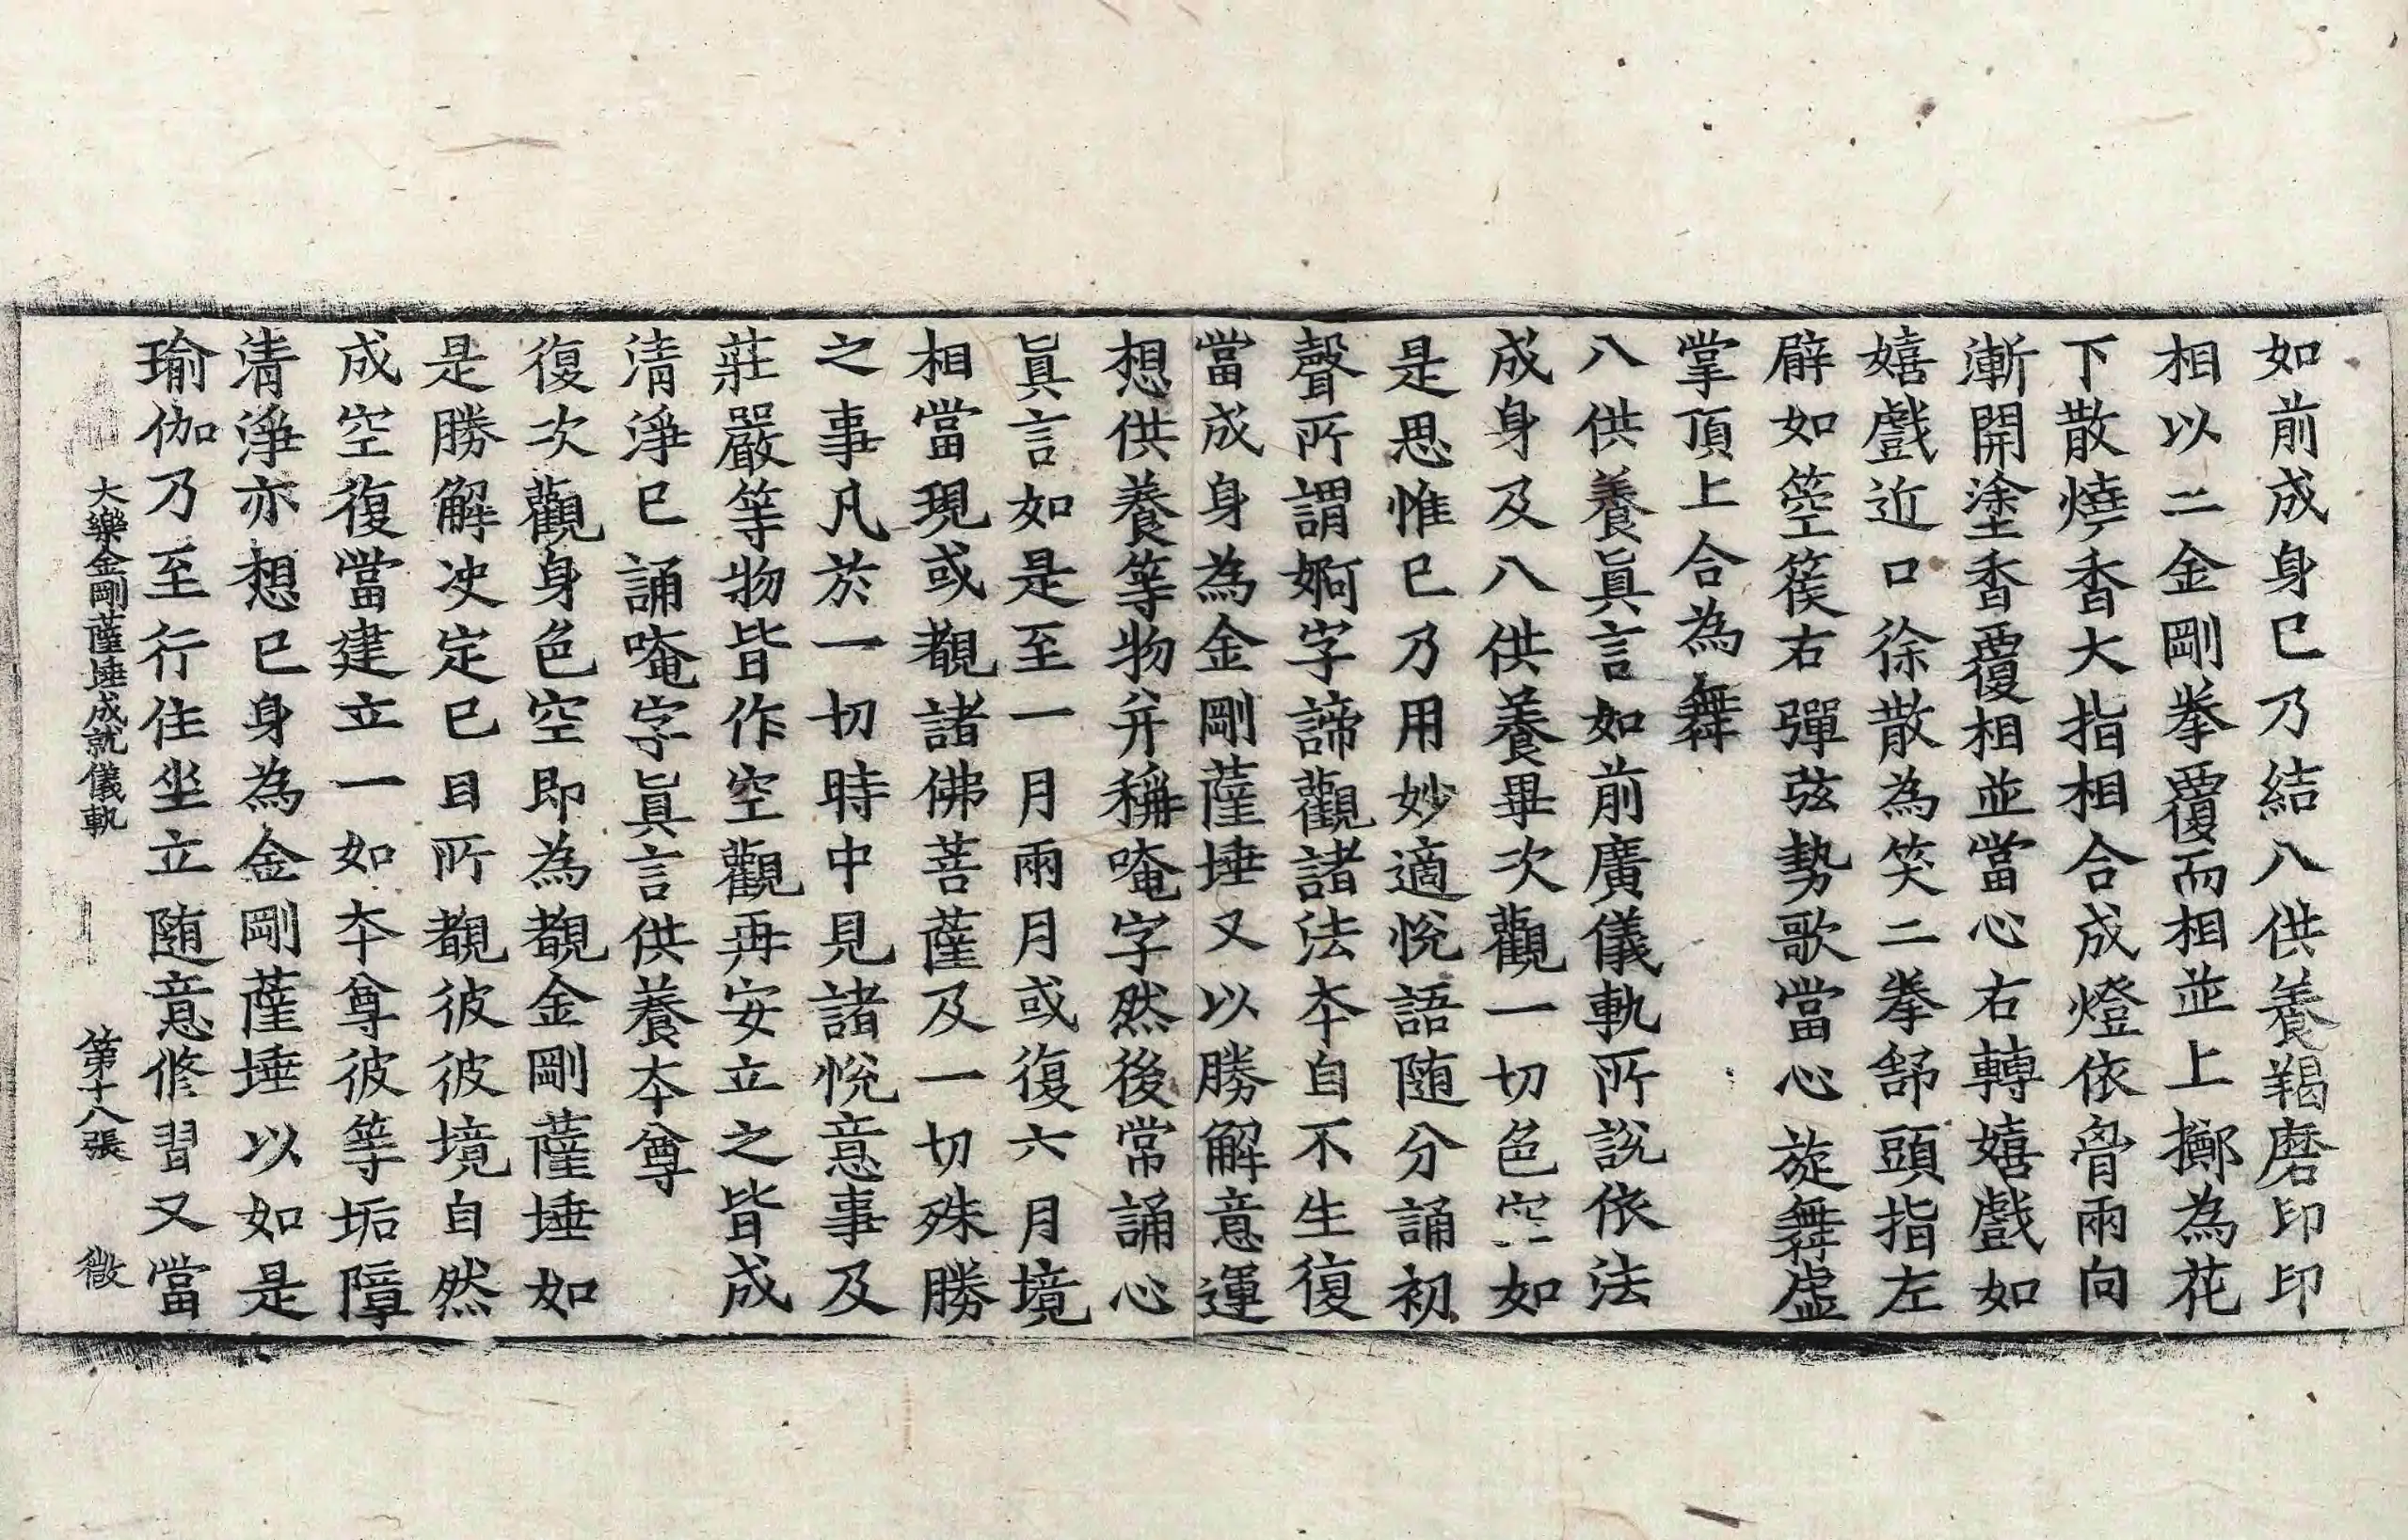 如前成身已乃結八供養羯磨印印
相以二金剛拳覆而相並上擲為花
下散燒香大指相合成燈依脅兩向
漸開塗香覆相並當心右轉嬉戲如
嬉戲近口徐散為笑二拳舒頭指左
臂如箜篌右彈弦勢歌當心旋舞虛
掌頂上合為舞
八供養眞言如前廣儀軌所說依法
成身及八供養畢次觀一切色空如
是思惟已乃用妙適悅語随分誦初
聲所謂婀字諦觀諸法夲自不生復
當成身為金剛薩埵又以勝解意運
想供養等物并稱唵字然後常誦心
眞言如是至一月兩月或復六月境
相當現或覩諸佛菩薩及一切殊勝
之事凡於一切時中見諸悅意事及
莊嚴等物皆作空觀再安立之皆成
清淨已誦唵字眞言供養夲尊
復次觀身色空即為覩金剛薩埵如
是勝解决定已目所覩彼彼境自然
成空復當建立一如夲尊彼等垢障
清淨亦想已身為金剛薩埵以如是
瑜伽乃至行住坐立随意修習又當
大樂金剛薩埵成就儀軌　第十八張